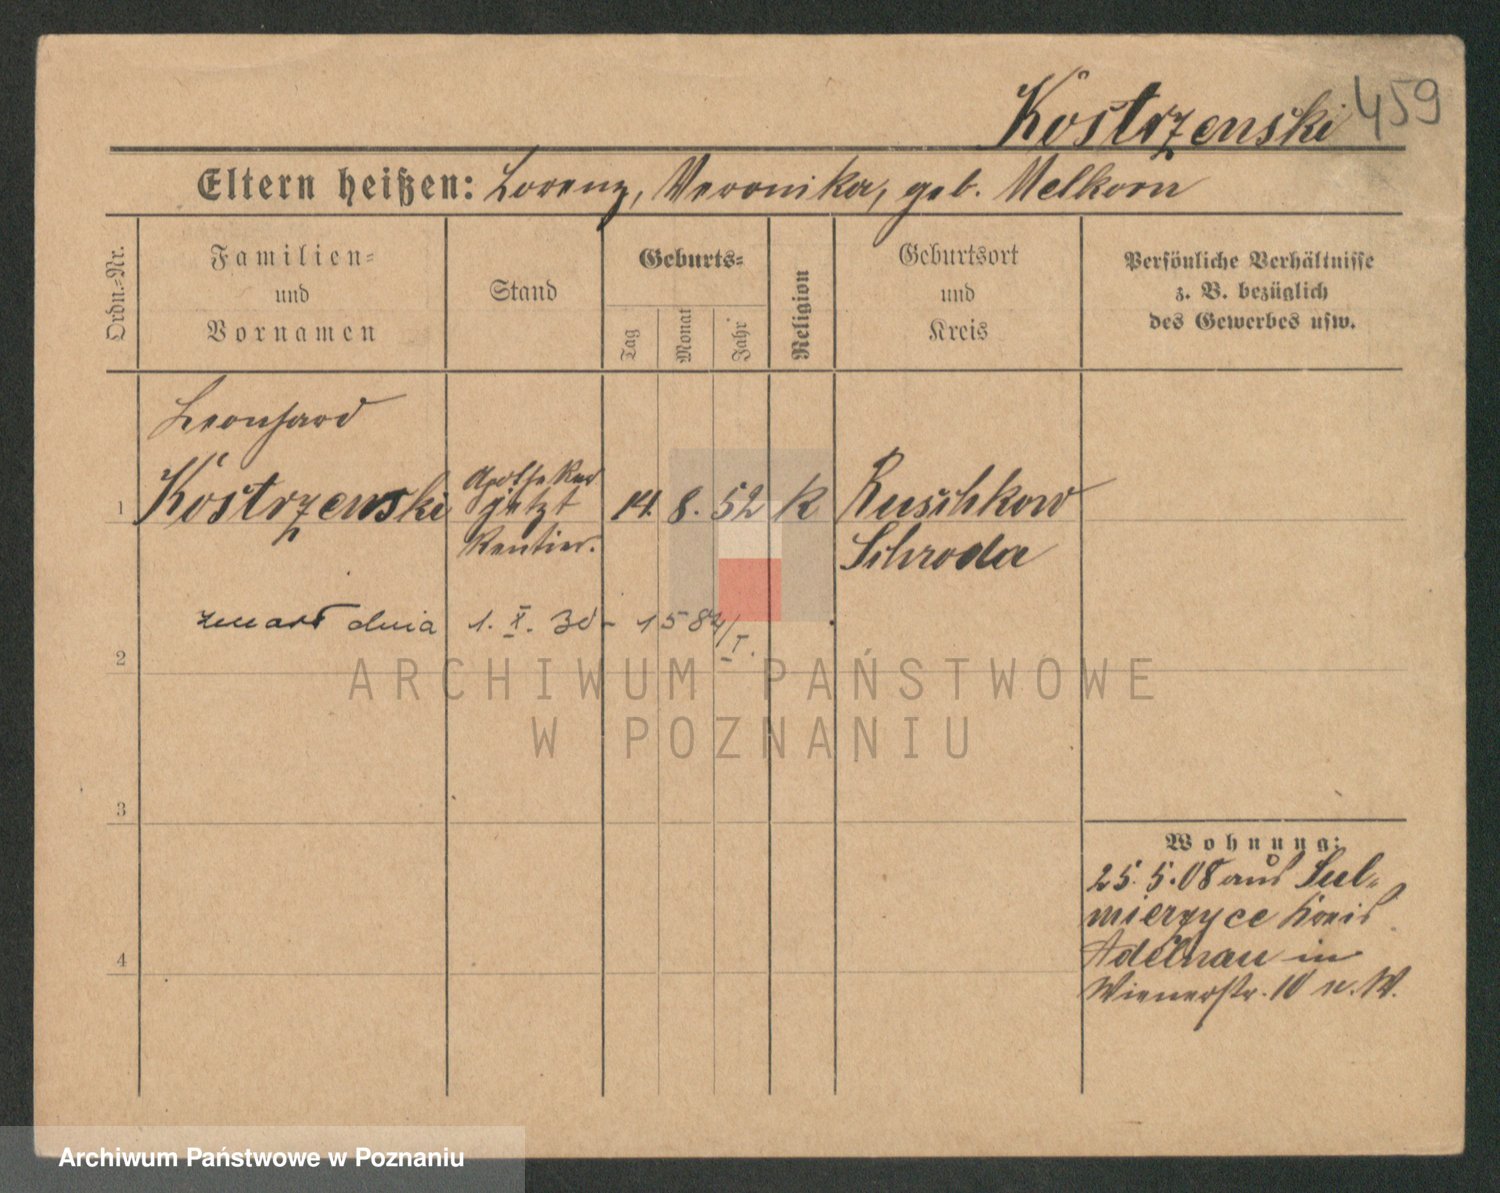 Kostrzenski 459
Eltern heißen: Lorenz, Veronika, geb. Melkorn
Ordn.-Nr.
Familien-
und
Vornamen
Stand
Geburts-
Tag
Monat
Jahr
Religion
Geburtsort
und
Kreis
Persönliche Verhältnisse
z. B. bezüglich
des Gewerbes usw.
Leonhard
1 Kostrzewski
Apotheker
jetzt
Rentier.
14. 8. 52 K
Ruschkow
Schroda
zmarł dnia 1. X. 30 - 1584/I.
2
3
4
Wohnung:
25. 5. 08 aus Sul-
mierzyce Kreis
Adelnau in
Wienerstr. 10 n. W.
ARCHIWUM PAŃSTWOWE
W POZNANIU
Archiwum Państwowe w Poznaniu